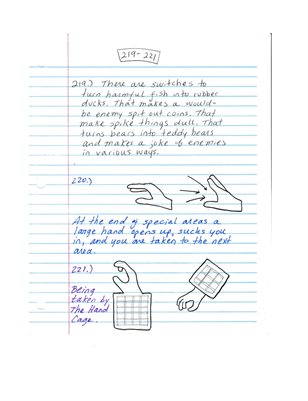 219-221
219.) There are switches to
turn harmful fish into rubber
ducks. That makes a would-
be enemy spit out coins. That
make spike things dull. That
turns bears into teddy bears
and makes a joke of enemies
in various ways.
220.)
At the end of special areas a
large hand opens up, sucks you
in, and you are taken to the next
area.
221.)
Being
taken by
The Hand
Cage.